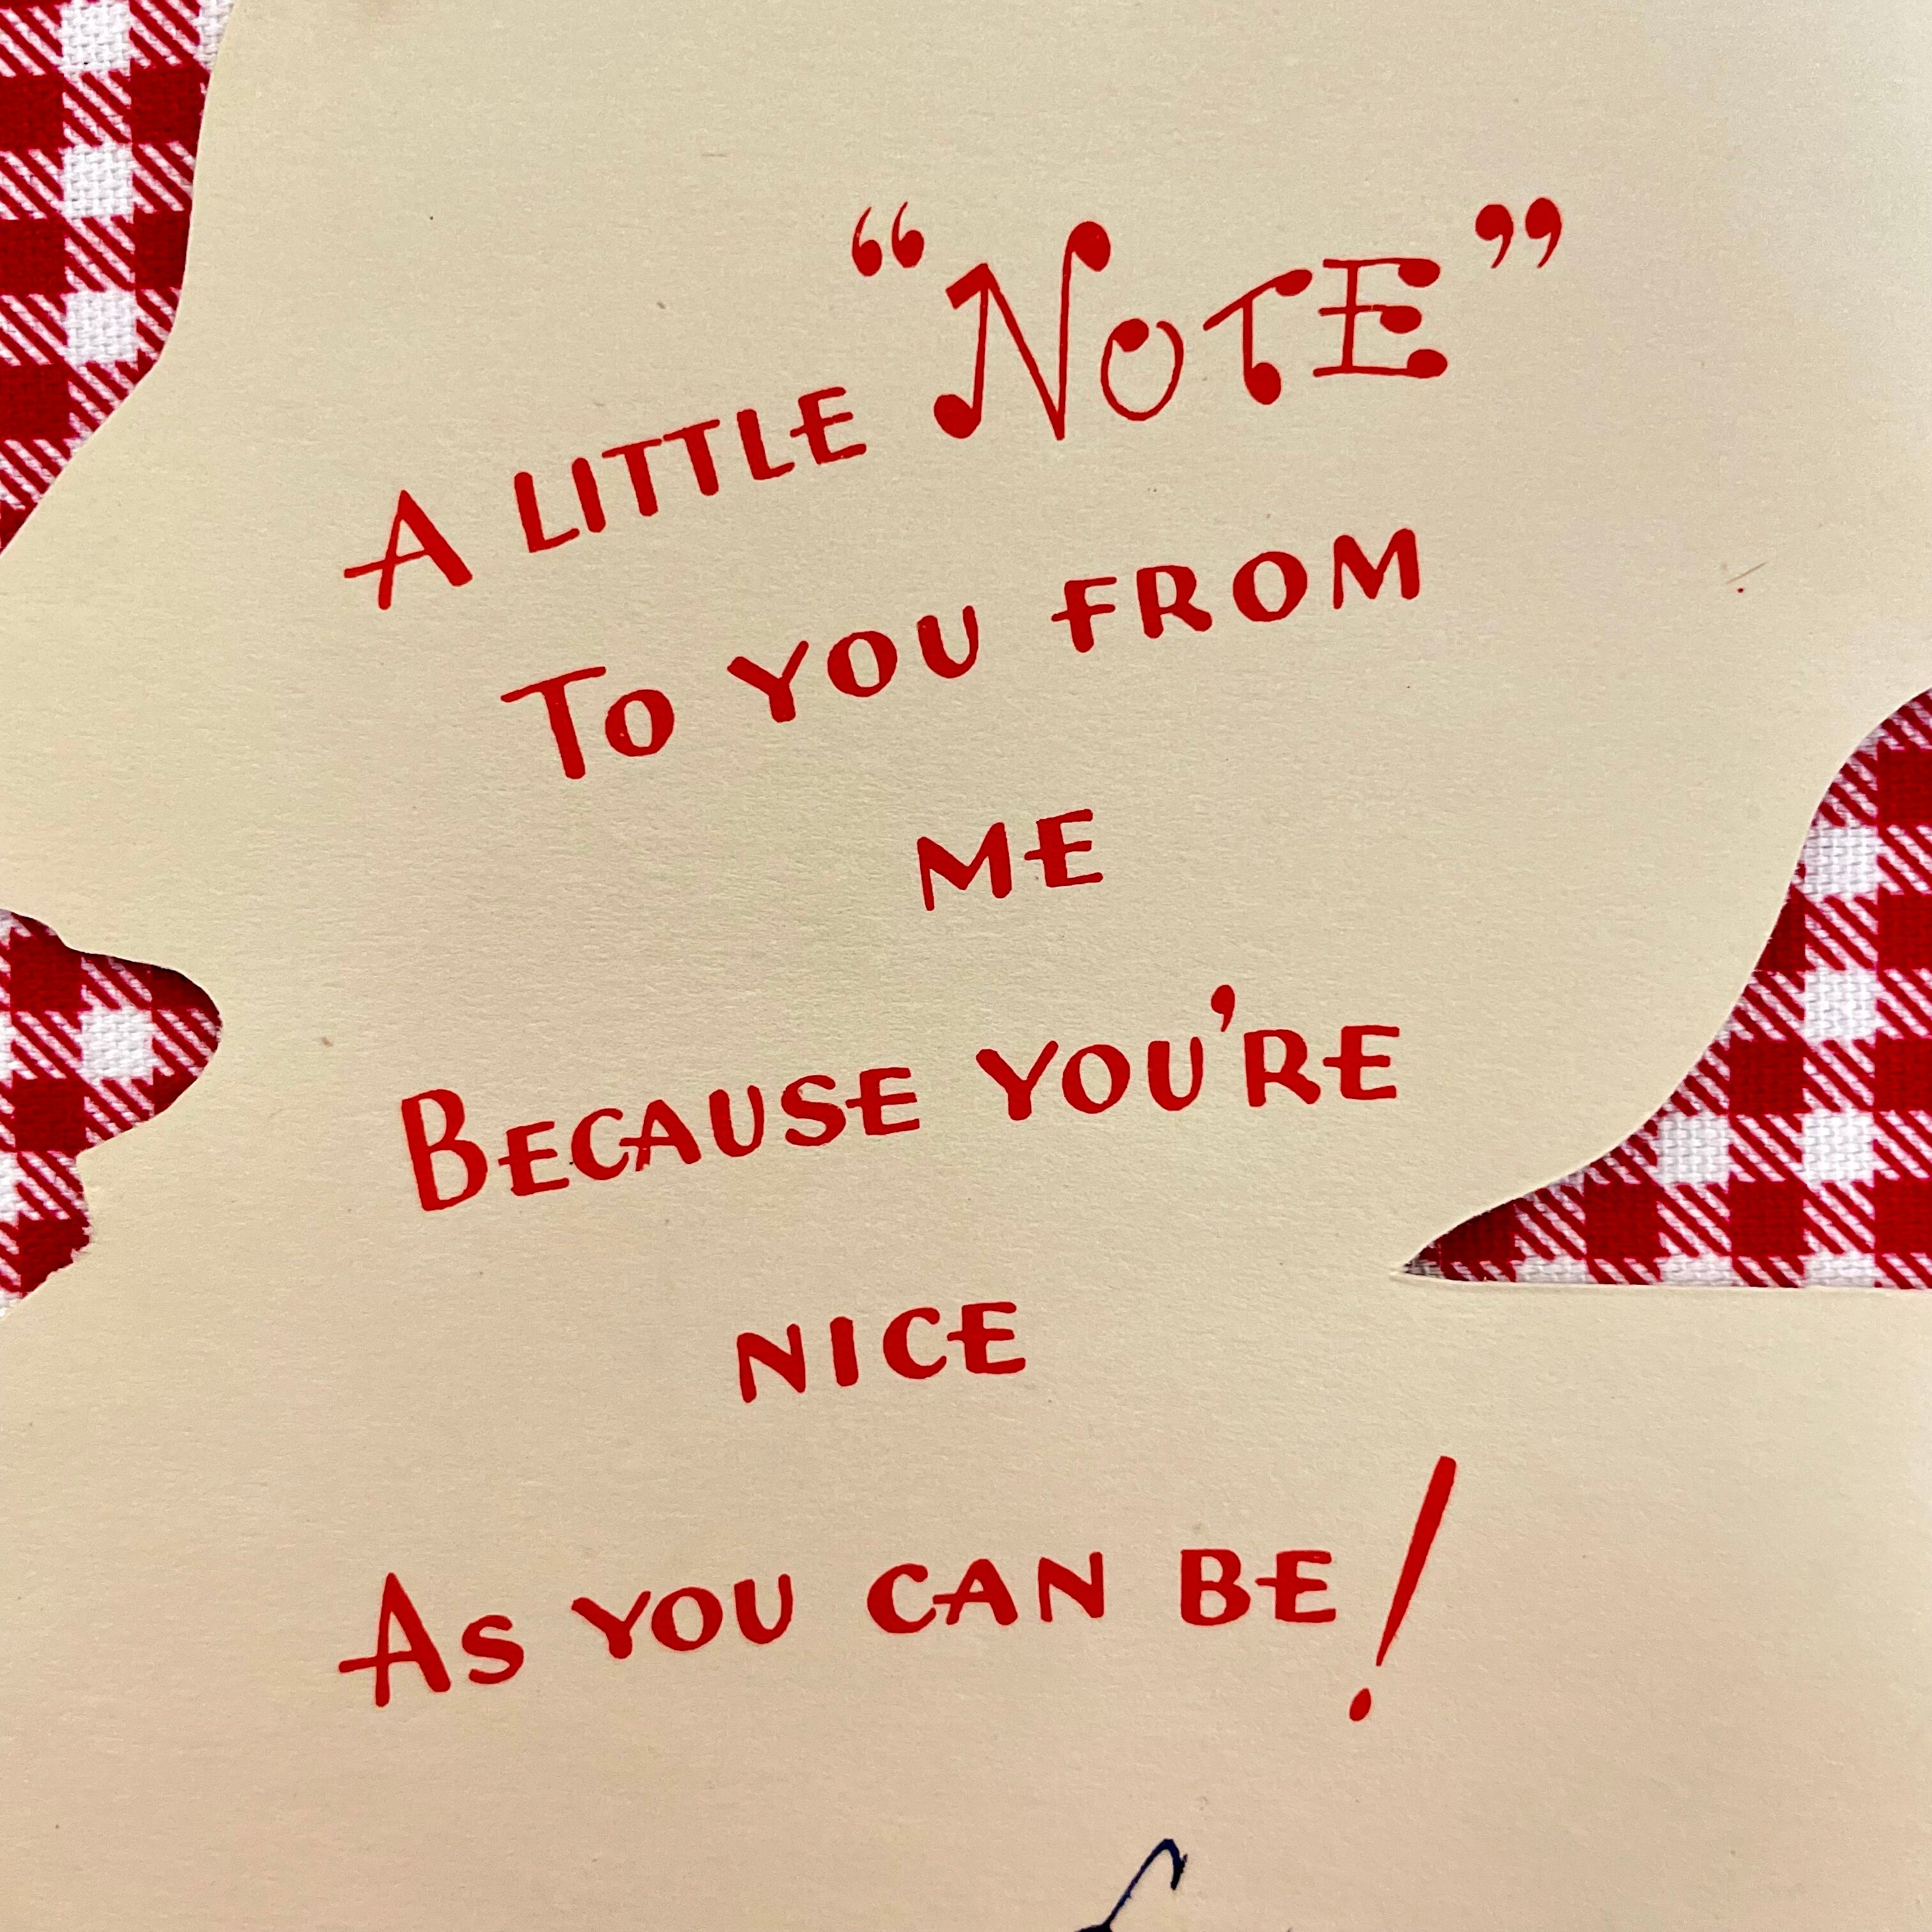 A LITTLE “NOTE”
To YOU FROM
ME
BECAUSE YOU'RE
NICE
As YOU CAN BE!